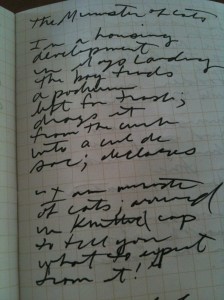 the Minister of Cats
In a housing
development
in Mays Landing
the boy finds
a podium
left for trash;
drags it
from the curb
into a cul de
sac; declares
"I am minister
of cats; arrived
in knitted cap
to tell you
what to expect
from it!"